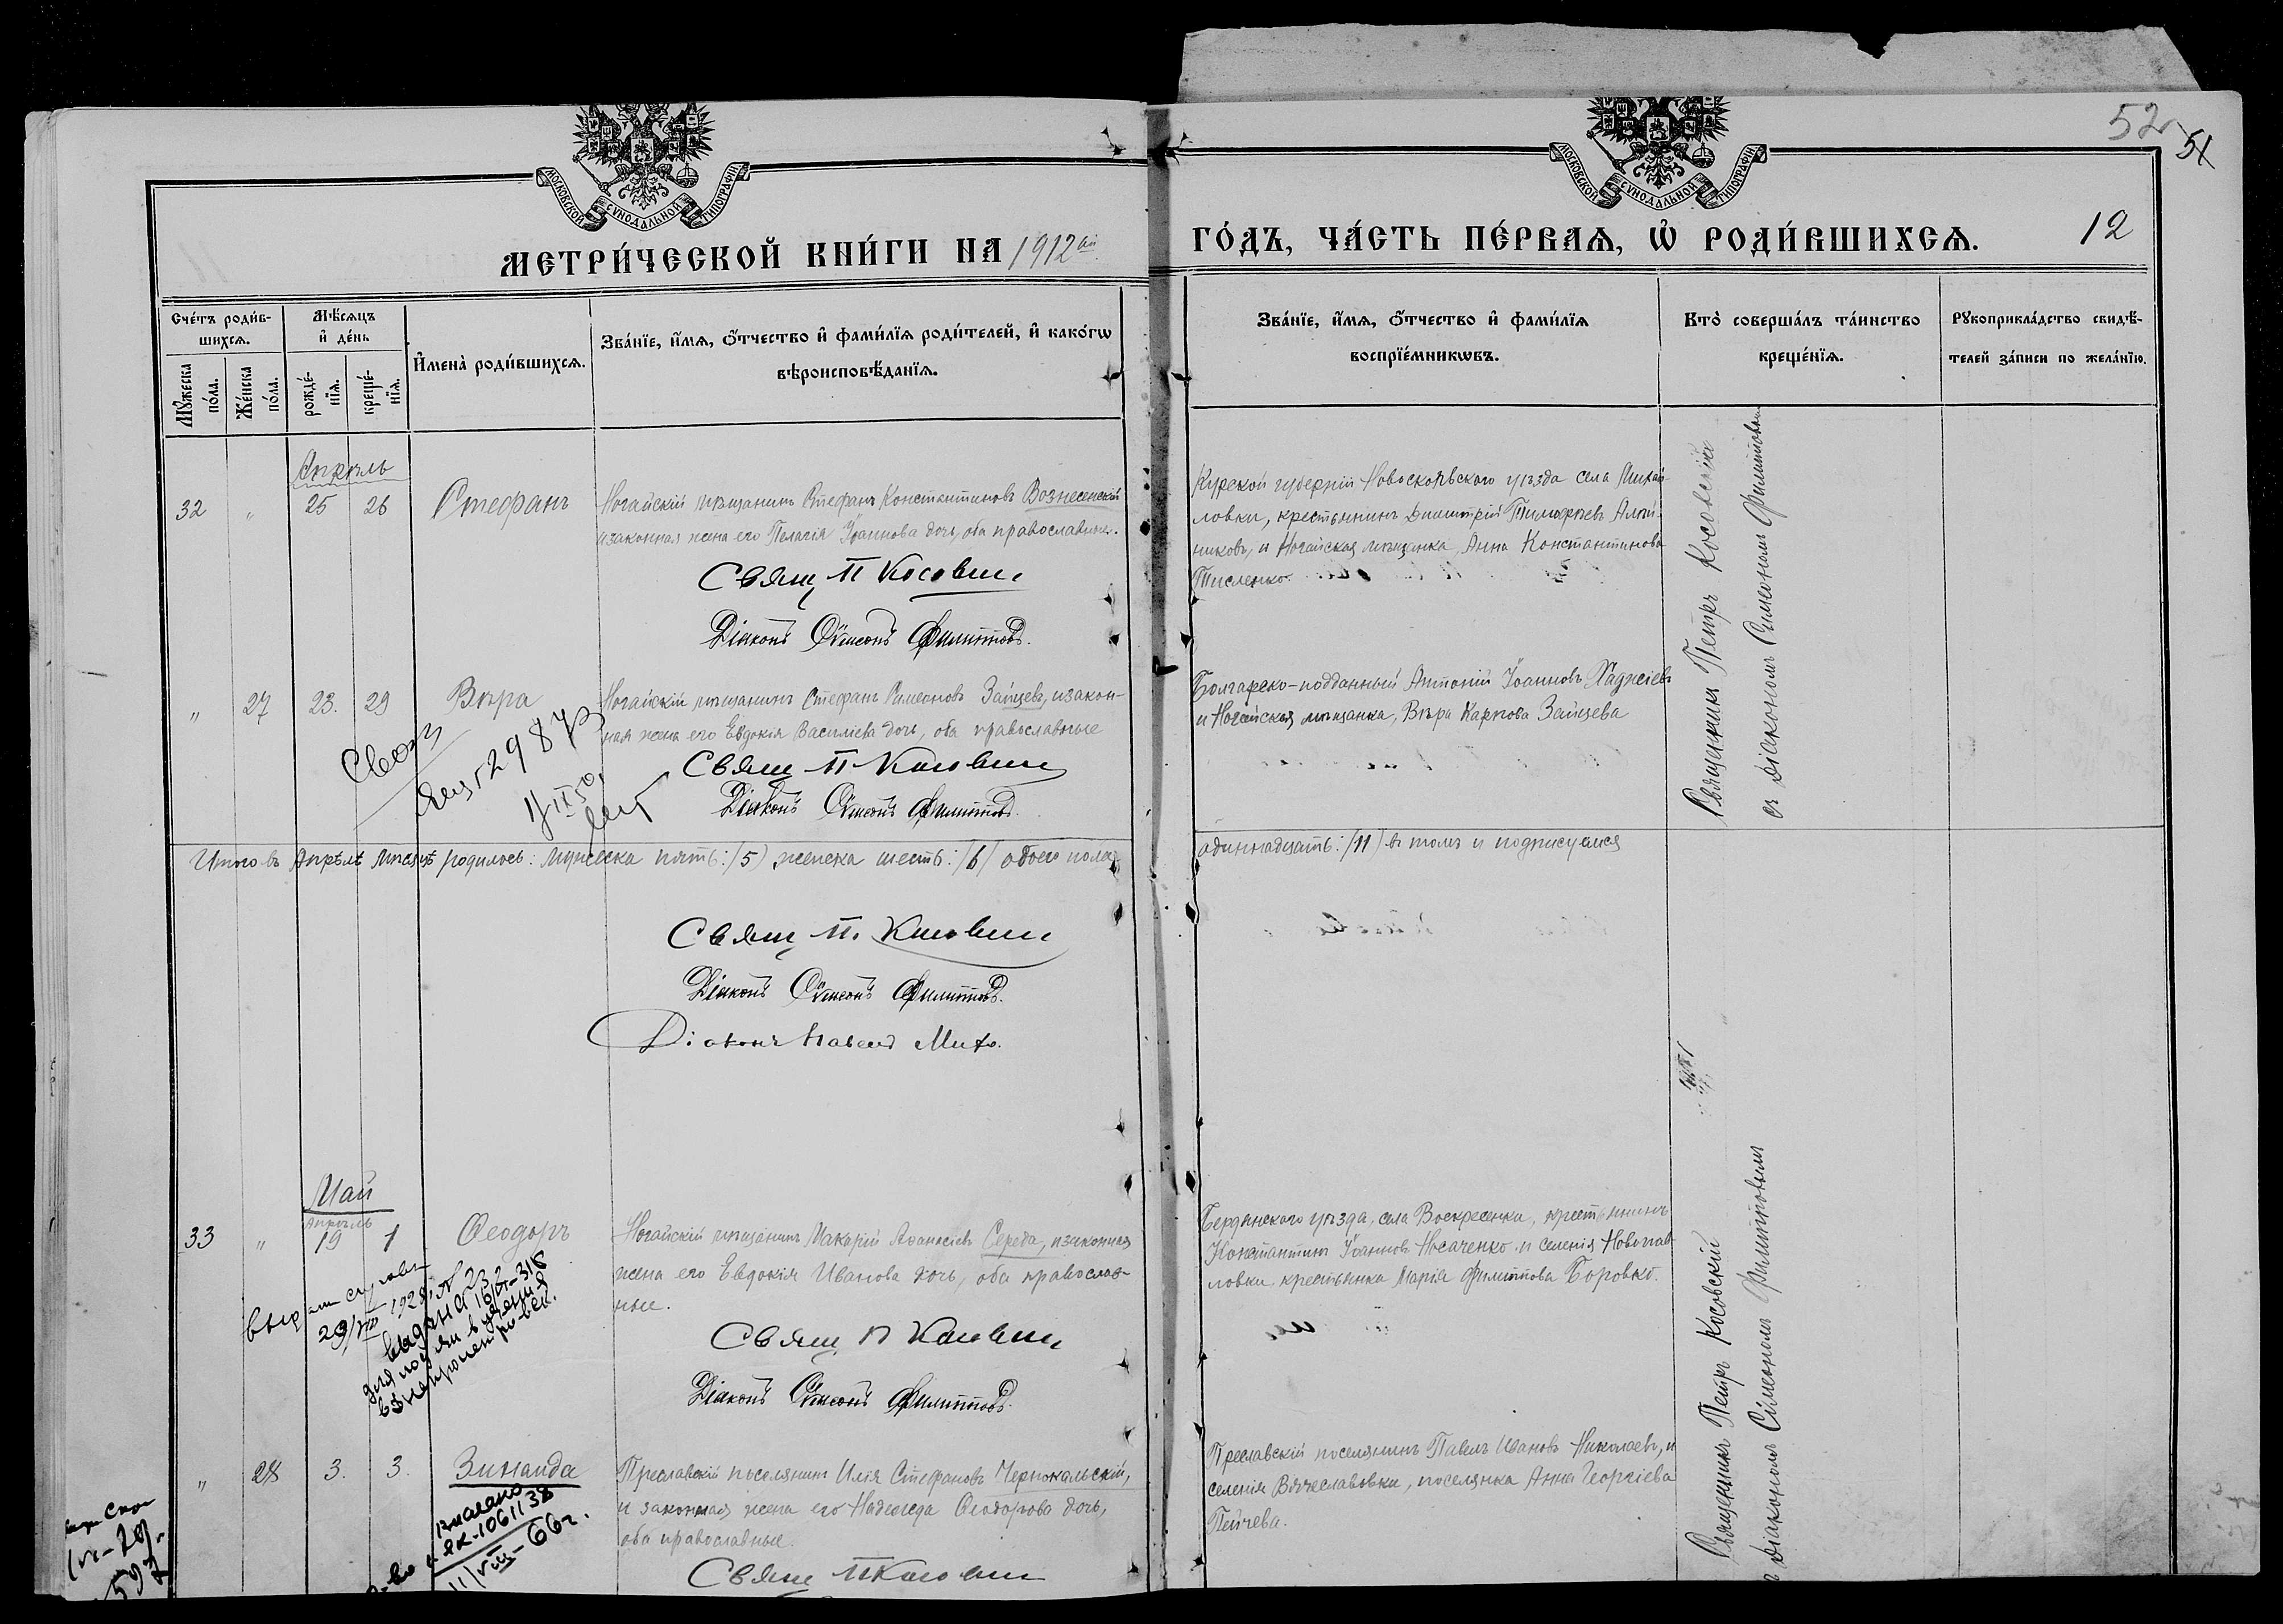 52
51
МОСКОВСКОЙ СѴНОДАЛЬНОЙ ТИПОГРАФІИ
МОСКОВСКОЙ СѴНОДАЛЬНОЙ ТИПОГРАФІИ
МЕТРИ́ЧЕСКОЙ КНИ́ГИ НА 1912ый
ГО́ДЪ, ЧА́СТЬ ПЕ́РВАѦ, Ѡ҆ РОДИ́ВШИХСѦ.
12
Сче́тъ роди́в-
шихсѧ.
Мꙋ́жеска по́ла.
Же́нска по́ла.
Мѣ́сѧцъ
и҆ де́нь
рожде́-
нїѧ.
креще́-
нїѧ.
И҆мена̀ роди́вшихсѧ.
Зва́нїе, и҆́мѧ, ѻ҆́тчество и҆ фами́лїѧ роди́телей, и҆ како́гѡ
вѣроисповѣ́данїѧ.
Зва́нїе, и҆́мѧ, ѻ҆́тчество и҆ фами́лїѧ
воспрїе́мникѡвъ.
Кто̀ соверша́лъ та́инство
креще́нїѧ.
Рꙋкоприкла́дство свидѣ́-
телей за́писи по жела́нїю.
Апрѣль
32 " 25 26 Стефанъ
Ногайскій мѣщанинъ Стефанъ Константиновъ Вознесенскій
и законная жена его Пелагія Іоаннова дочь, оба православные.
Свящ. П Косовскій
Діаконъ Сѵмеонъ Филипповъ.
Курской губерніи Новоскольского уѣзда села Михай-
ловки, крестьянинъ Димитрій Тимофеевъ Алей-
никовъ, и Ногайская мѣщанка, Анна Константинова
Тисленко.
Священникъ Петръ Косовскій
съ діакономъ Симеономъ Филипповымъ
" 27 23. 29 Вѣра
Ногайскій мѣщанинъ Стефанъ Симеоновъ Зайцевъ, и закон-
ная жена его Евдокія Василіева дочь, оба православные
Свящ. П. Косовскій
Діаконъ Сѵмеонъ Филипповъ.
Болгарско-подданный Антоній Іоанновъ Хаджіевъ
и Ногайская мѣщанка, Вѣра Карпова Зайцева
29873
Итого въ Апрѣлѣ мѣсяцѣ родилось: мужеска пять: /5/ женска шесть: /6/ обоего пола
одиннадцать: /11/ въ томъ и подписуемся
Свящ. П. Косовскій
Діаконъ Сѵмеонъ Филипповъ.
Діаконъ Павелъ Михо.
Май
Апрѣль
33 " 19 1 Ѳеодоръ
Ногайскій мѣщанинъ Макарій Аѳанасіевъ Середа, и законная
жена его Евдокія Иванова дочь, оба православ-
ные.
Свящ. П Косовскій
Діаконъ Сѵмеонъ Филипповъ.
Бердянского уѣзда, села Воскресенка, крестьянинъ
Константинъ Іоанновъ Носаченко и селенія Новопав-
ловки крестьянка Марія Филиппова Боровко.
Священникъ Петръ Косовскій
съ діакономъ Сімеономъ Филипповымъ
29/VIII 1928
" 28 3. 3. Зинаида
Преславскій поселянинъ Илія Стефановъ Чернокальскій,
и законная жена его Надежда Ѳеодорова дочь,
оба православные.
Свящ. П Косовскій
Преславскій поселянинъ Павелъ Ивановъ Николаевъ, и
селенія Вячеславовки, поселянка Анна Георгіева
Пейчева.
ЯК-1061138
11/VIII-66г.